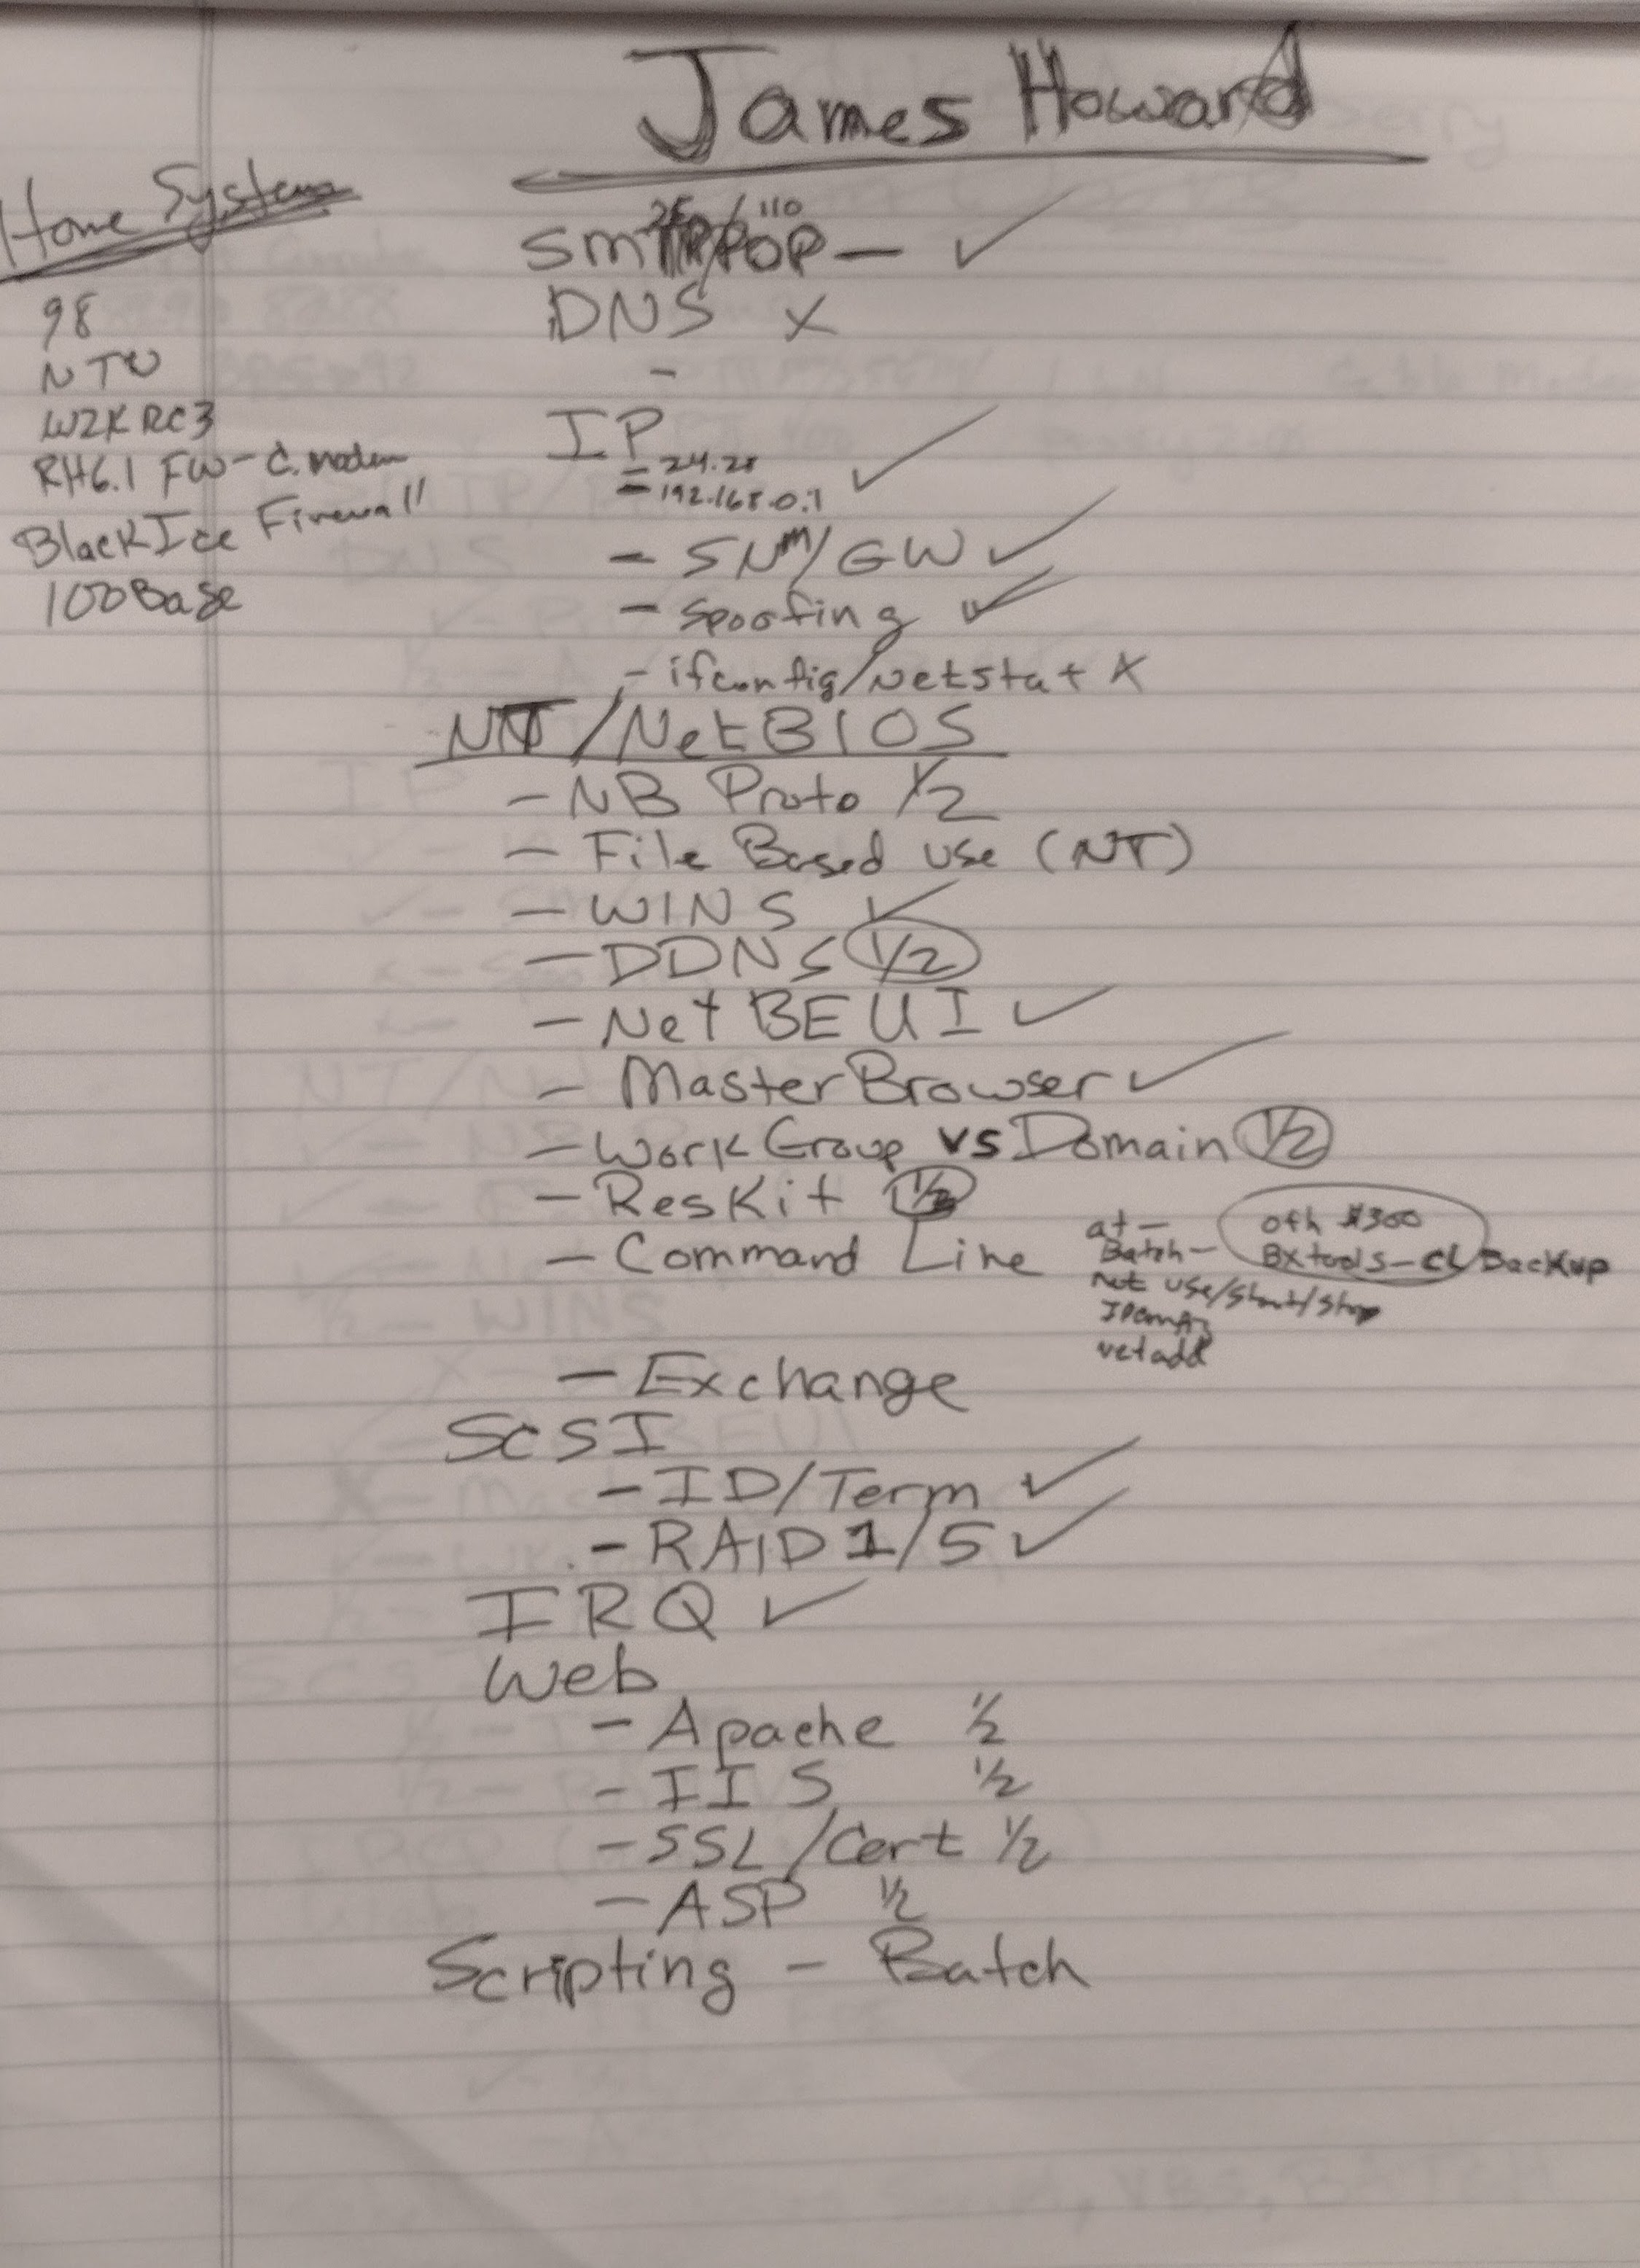 James Howard
Home System
98
NTW
W2K RC3
RH6.1 FW - C. modem
BlackIce Firewall
100Base
25/110
SMTP/POP — ✓
DNS X
-
IP ✓
- 24.28
- 192.168.0.1
- SNM/GW ✓
- Spoofing ✓
- ifconfig/Netstat X
NT/NetBIOS
- NB Proto 1/2
- File Based use (NT)
- WINS ✓
- DDNS 1/2
- NetBEUI ✓
- MasterBrowser ✓
- WorkGroup vs Domain 1/2
- ResKit 1/2
- Command Line
at -
Batch -
net use/start/stop
net add
$300
BXtools - CL Backup
- Exchange
SCSI
- ID/Term ✓
- RAID 1/5 ✓
IRQ ✓
Web
- Apache 1/2
- IIS 1/2
- SSL/Cert 1/2
- ASP 1/2
Scripting - Batch